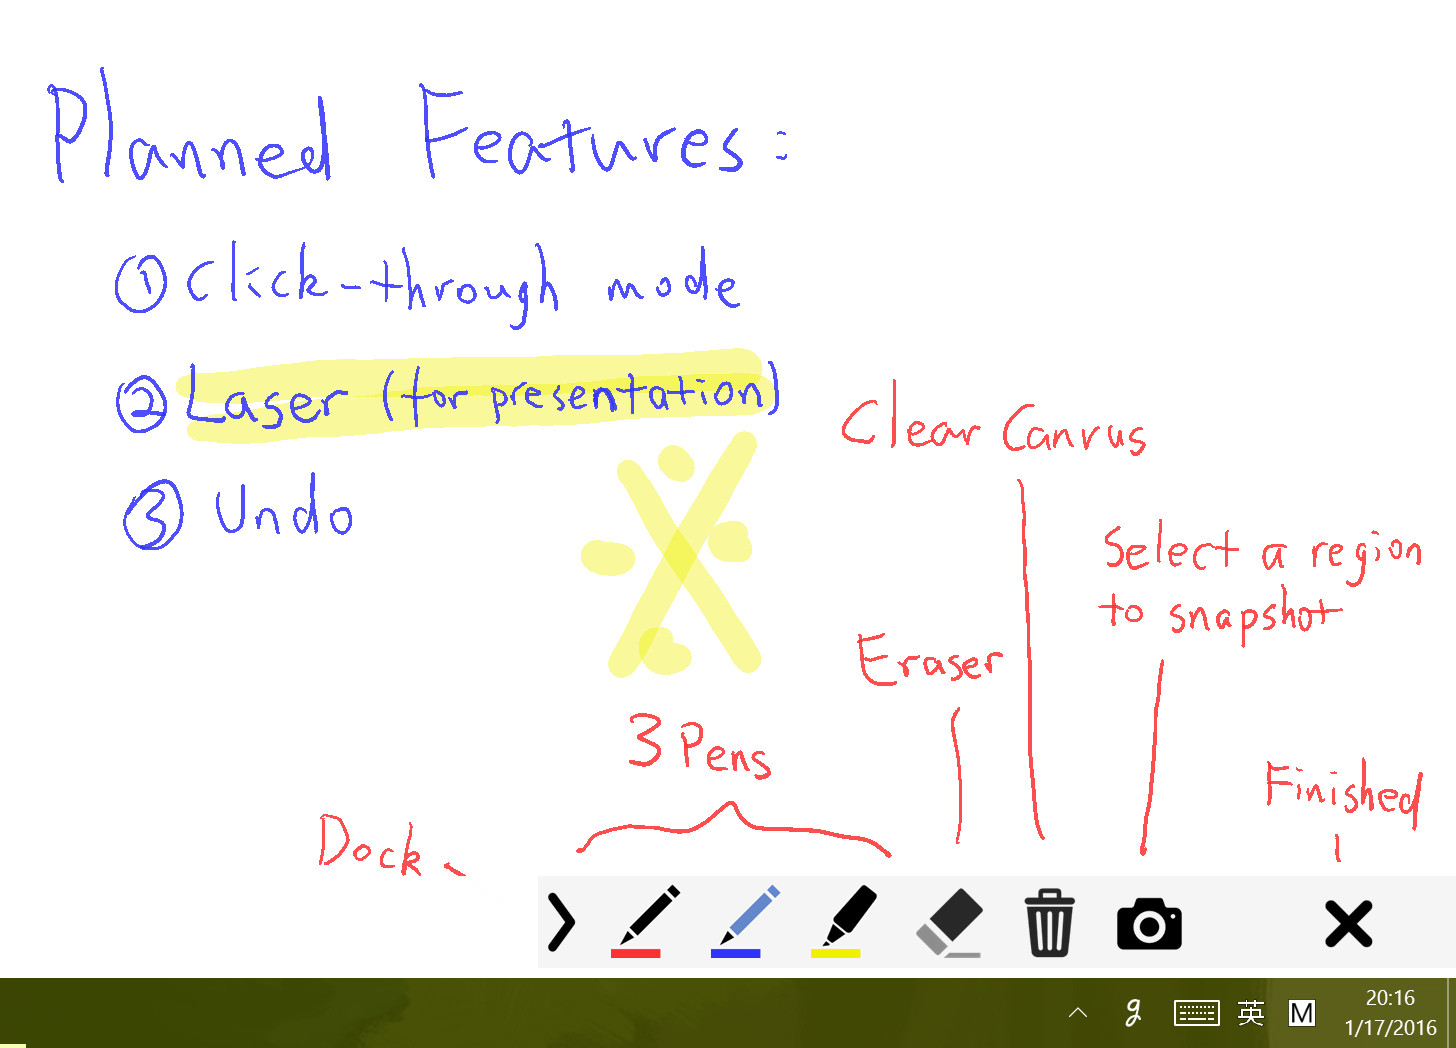 Planned Features:
① Click-through mode
② Laser (for presentation)
③ Undo
Clear Canvus
Select a region
to snapshot
Eraser
3 Pens
Finished
Dock
英 M
20:16
1/17/2016